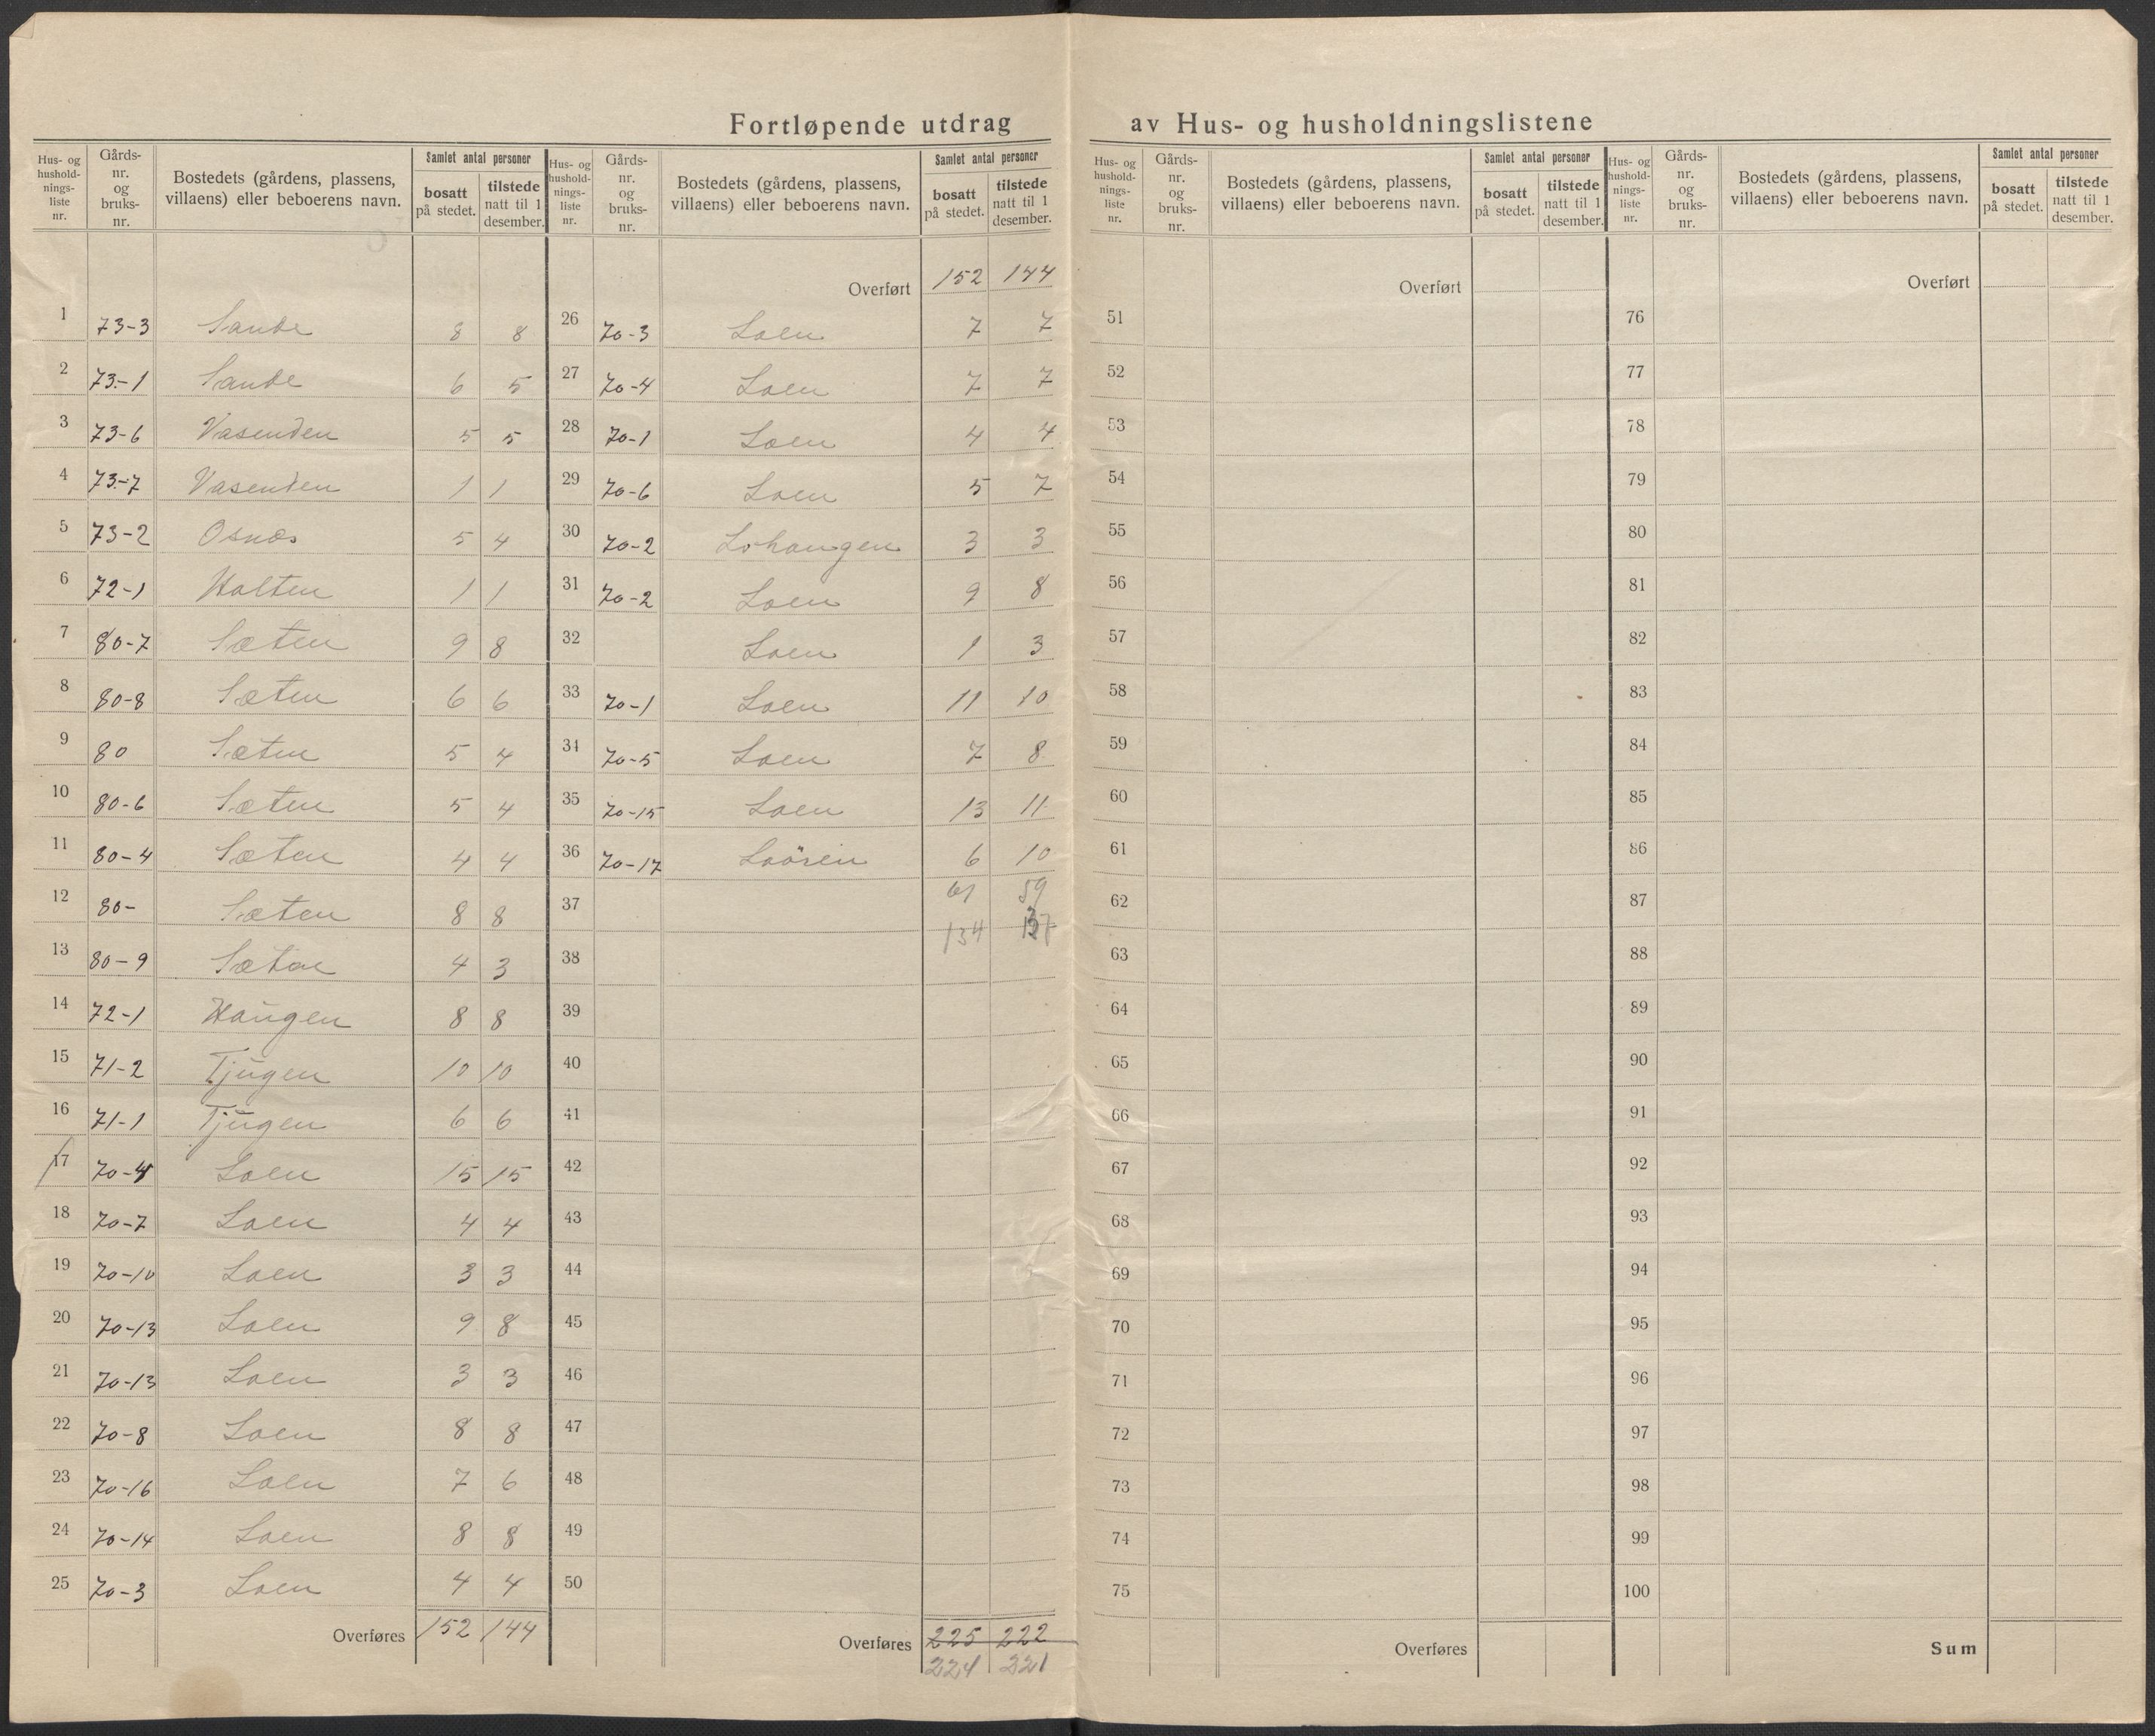 Fortløpende utdrag av Hus- og husholdningslistene
Hus- og hushold-nings-liste nr. | Gårds-nr. og bruks-nr. | Bostedets (gårdens, plassens, villaens) eller beboerens navn. | Samlet antal personer | bosatt på stedet. | tilstede natt til 1 desember.
1 73-3 Sande 8 8
2 73-1 Sande 6 5
3 73-6 Vasenden 5 5
4 73-7 Vasenden 1 1
5 73-2 Osnæs 5 4
6 72-1 Holten 1 1
7 80-7 Sæten 9 8
8 80-8 Sæten 6 6
9 80 Sæten 5 4
10 80-6 Sæten 5 4
11 80-4 Sæten 4 4
12 80- Sæten 8 8
13 80-9 Sæten 4 3
14 72-1 Haugen 8 8
15 71-2 Tjugen 10 10
16 71-1 Tjugen 6 6
17 70-4 Loen 15 15
18 70-7 Loen 4 4
19 70-10 Loen 3 3
20 70-13 Loen 9 8
21 70-13 Loen 3 3
22 70-8 Loen 8 8
23 70-16 Loen 7 6
24 70-14 Loen 8 8
25 70-3 Loen 4 4
Overføres 152 144
Hus- og hushold-nings-liste nr. | Gårds-nr. og bruks-nr. | Bostedets (gårdens, plassens, villaens) eller beboerens navn. | Samlet antal personer | bosatt på stedet. | tilstede natt til 1 desember.
Overført 152 144
26 70-3 Loen 7 7
27 70-4 Loen 7 7
28 70-1 Loen 4 4
29 70-6 Loen 5 7
30 70-2 Lohaugen 3 3
31 70-2 Loen 9 8
32 Loen 1 3
33 70-1 Loen 11 10
34 70-5 Loen 7 8
35 70-15 Loen 13 11
36 70-17 Loören 6 10
37 61 59
134 137
38
39
40
41
42
43
44
45
46
47
48
49
50
Overføres 225 222
224 221
Hus- og hushold-nings-liste nr. | Gårds-nr. og bruks-nr. | Bostedets (gårdens, plassens, villaens) eller beboerens navn. | Samlet antal personer | bosatt på stedet. | tilstede natt til 1 desember.
Overført
51
52
53
54
55
56
57
58
59
60
61
62
63
64
65
66
67
68
69
70
71
72
73
74
75
Overføres
Hus- og hushold-nings-liste nr. | Gårds-nr. og bruks-nr. | Bostedets (gårdens, plassens, villaens) eller beboerens navn. | Samlet antal personer | bosatt på stedet. | tilstede natt til 1 desember.
Overført
76
77
78
79
80
81
82
83
84
85
86
87
88
89
90
91
92
93
94
95
96
97
98
99
100
Sum